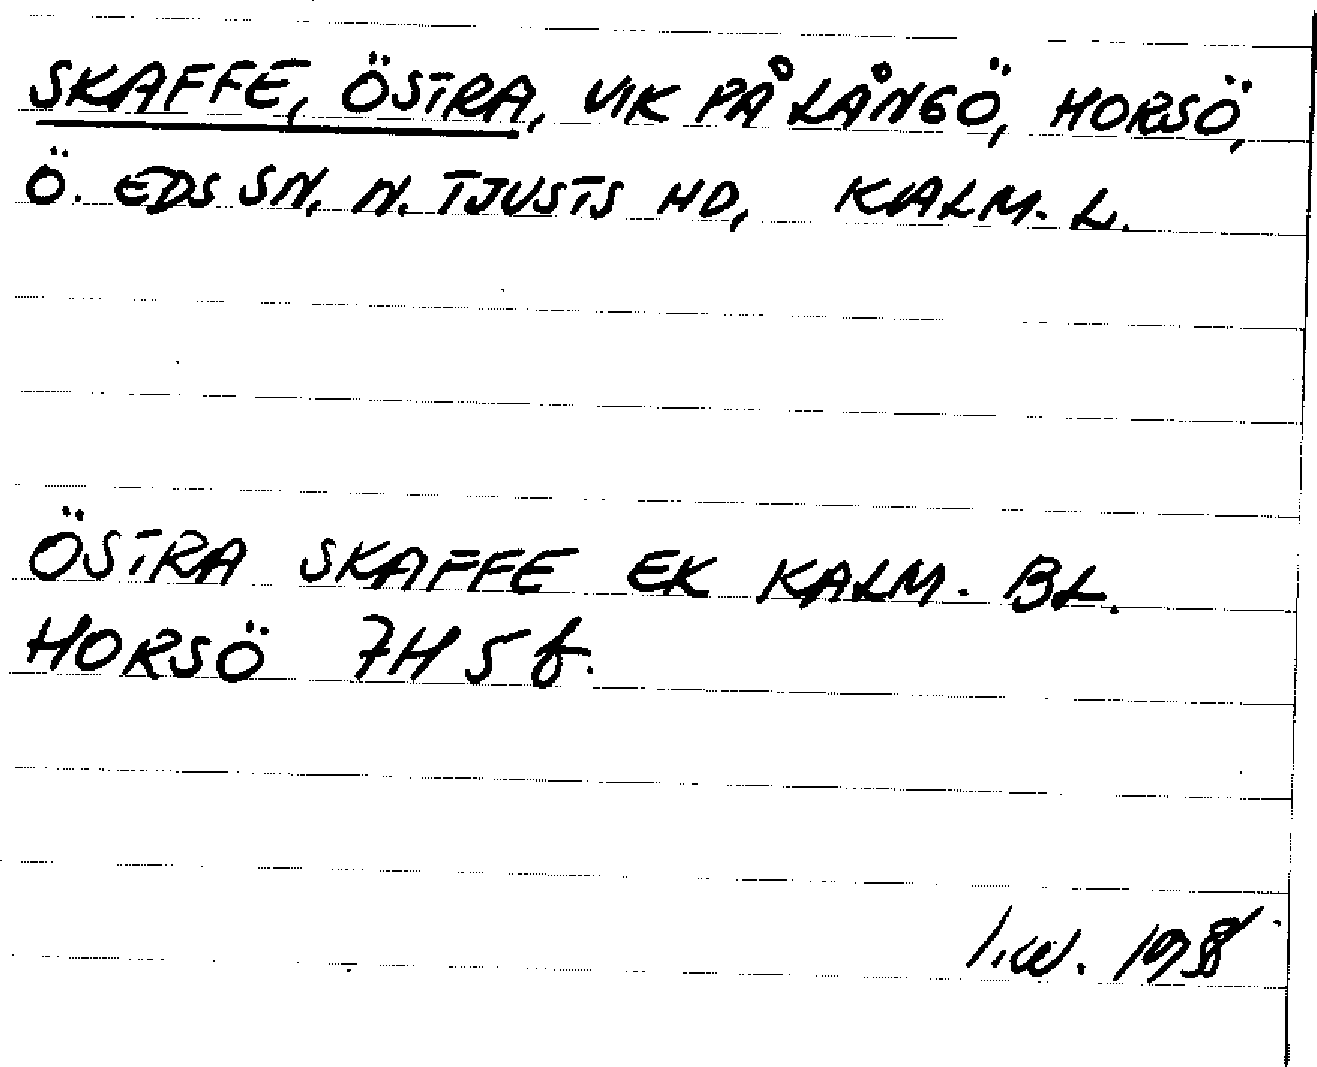 SKAFFE, ÖSTRA, VIK PÅ LÅNGÖ, HORSÖ,
Ö. EDS SN, N. TJUSTS HD, KALM. L.
ÖSTRA SKAFFE EK KALM. BL.
HORSÖ 7H 5 f.